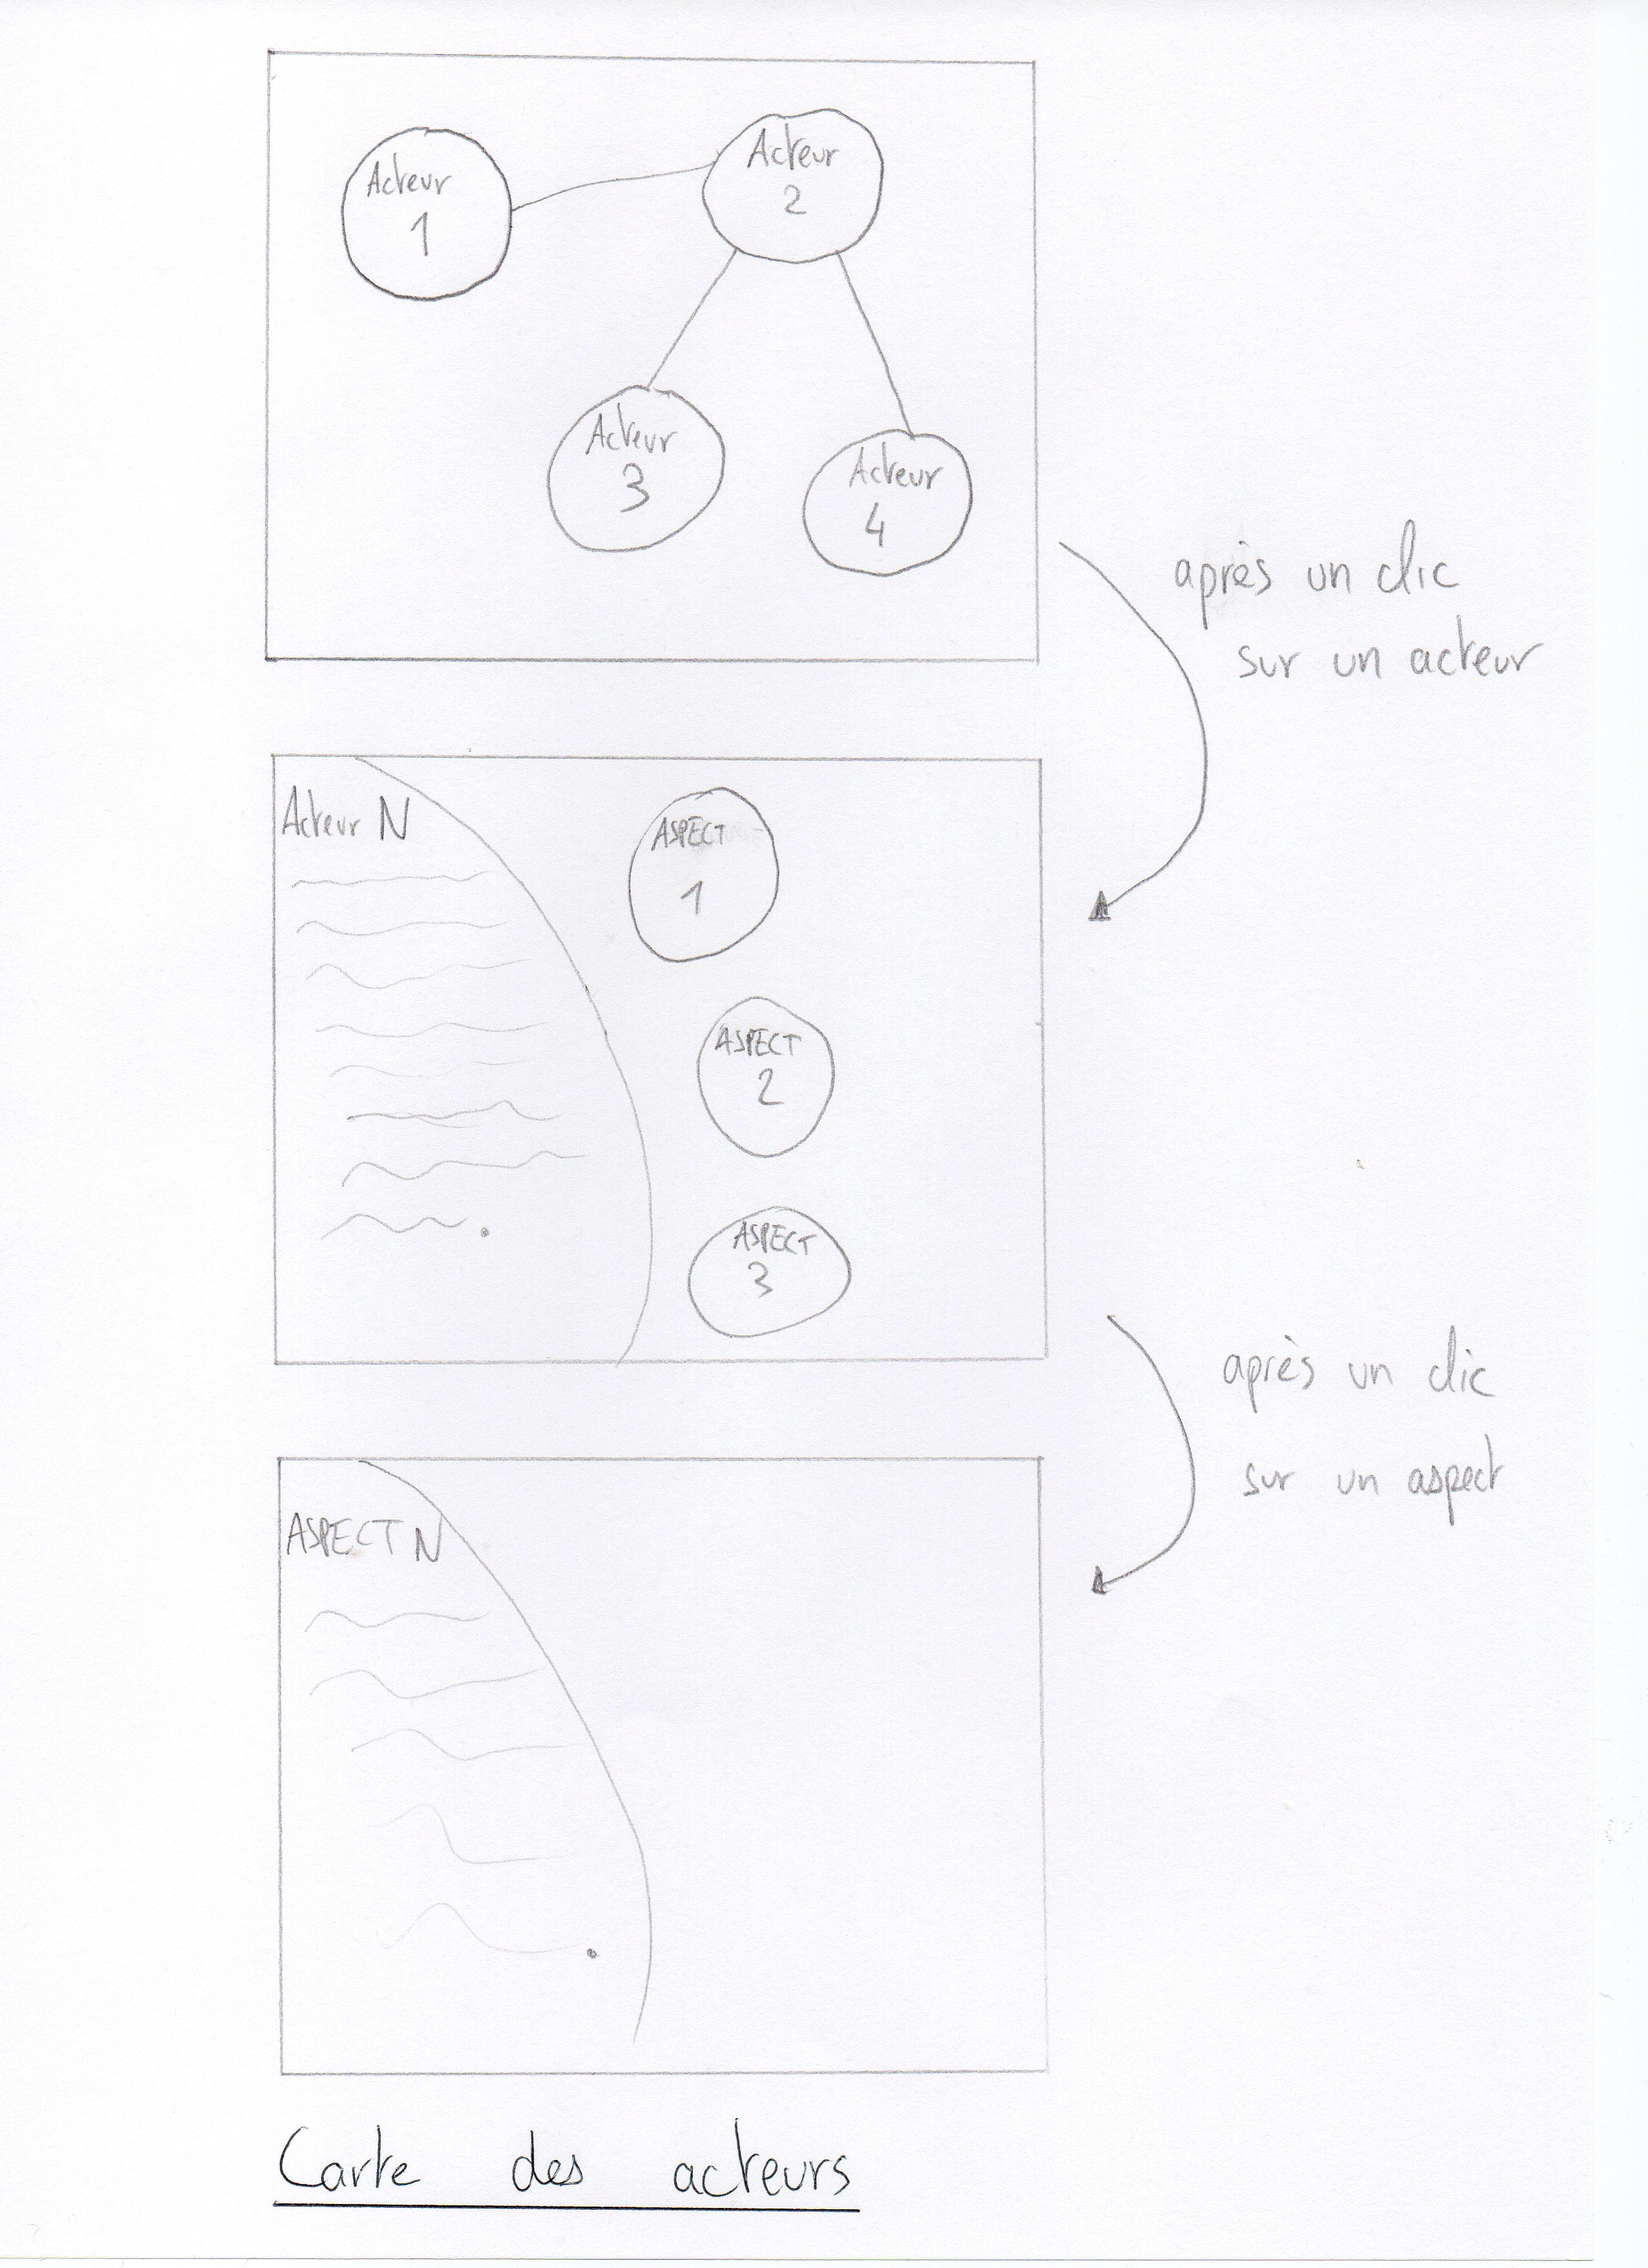 Acteur
1
Acteur
2
Acteur
3
Acteur
4
après un clic
sur un acteur
Acteur N
ASPECT
1
ASPECT
2
ASPECT
3
après un clic
sur un aspect
ASPECT N
Carte des acteurs